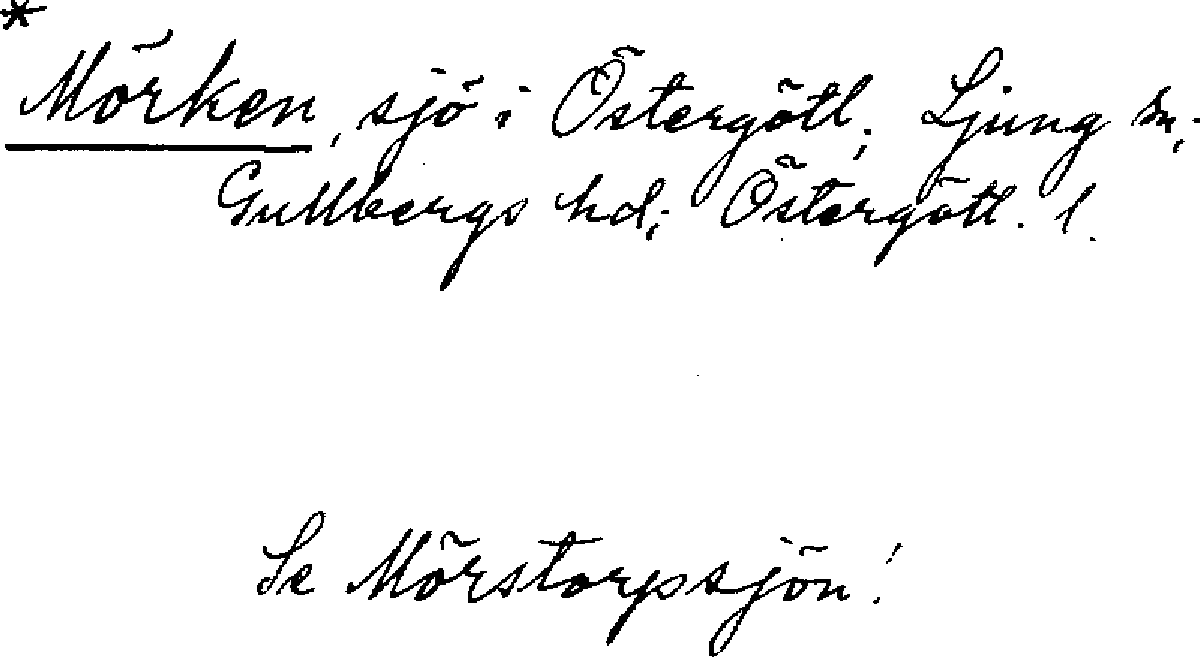 *
Mörken, sjö i Östergötl; Ljung sn;
Gullbergs hd; Östergötl. l.
Se Mörstorpsjön!